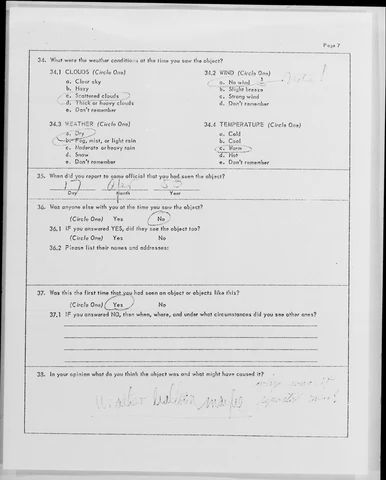 Page 7
34. What were the weather conditions at the time you saw the object?
34.1 CLOUDS (Circle One)
a. Clear sky
b. Hazy
c. Scattered clouds
d. Thick or heavy clouds
e. Don't remember
34.2 WIND (Circle One)
a. No wind
b. Slight breeze
c. Strong wind
d. Don't remember
34.3 WEATHER (Circle One)
a. Dry
b. Fog, mist, or light rain
c. Moderate or heavy rain
d. Snow
e. Don't remember
34.4 TEMPERATURE (Circle One)
a. Cold
b. Cool
c. Warm
d. Hot
e. Don't remember
35. When did you report to some official that you had seen the object?
Day Month Year
36. Was anyone else with you at the time you saw the object?
(Circle One) Yes No
36.1 IF you answered YES, did they see the object too?
(Circle One) Yes No
36.2 Please list their names and addresses:
37. Was this the first time that you had seen an object or objects like this?
(Circle One) Yes No
37.1 IF you answered NO, then when, where, and under what circumstances did you see other ones?
38. In your opinion what do you think the object was and what might have caused it?